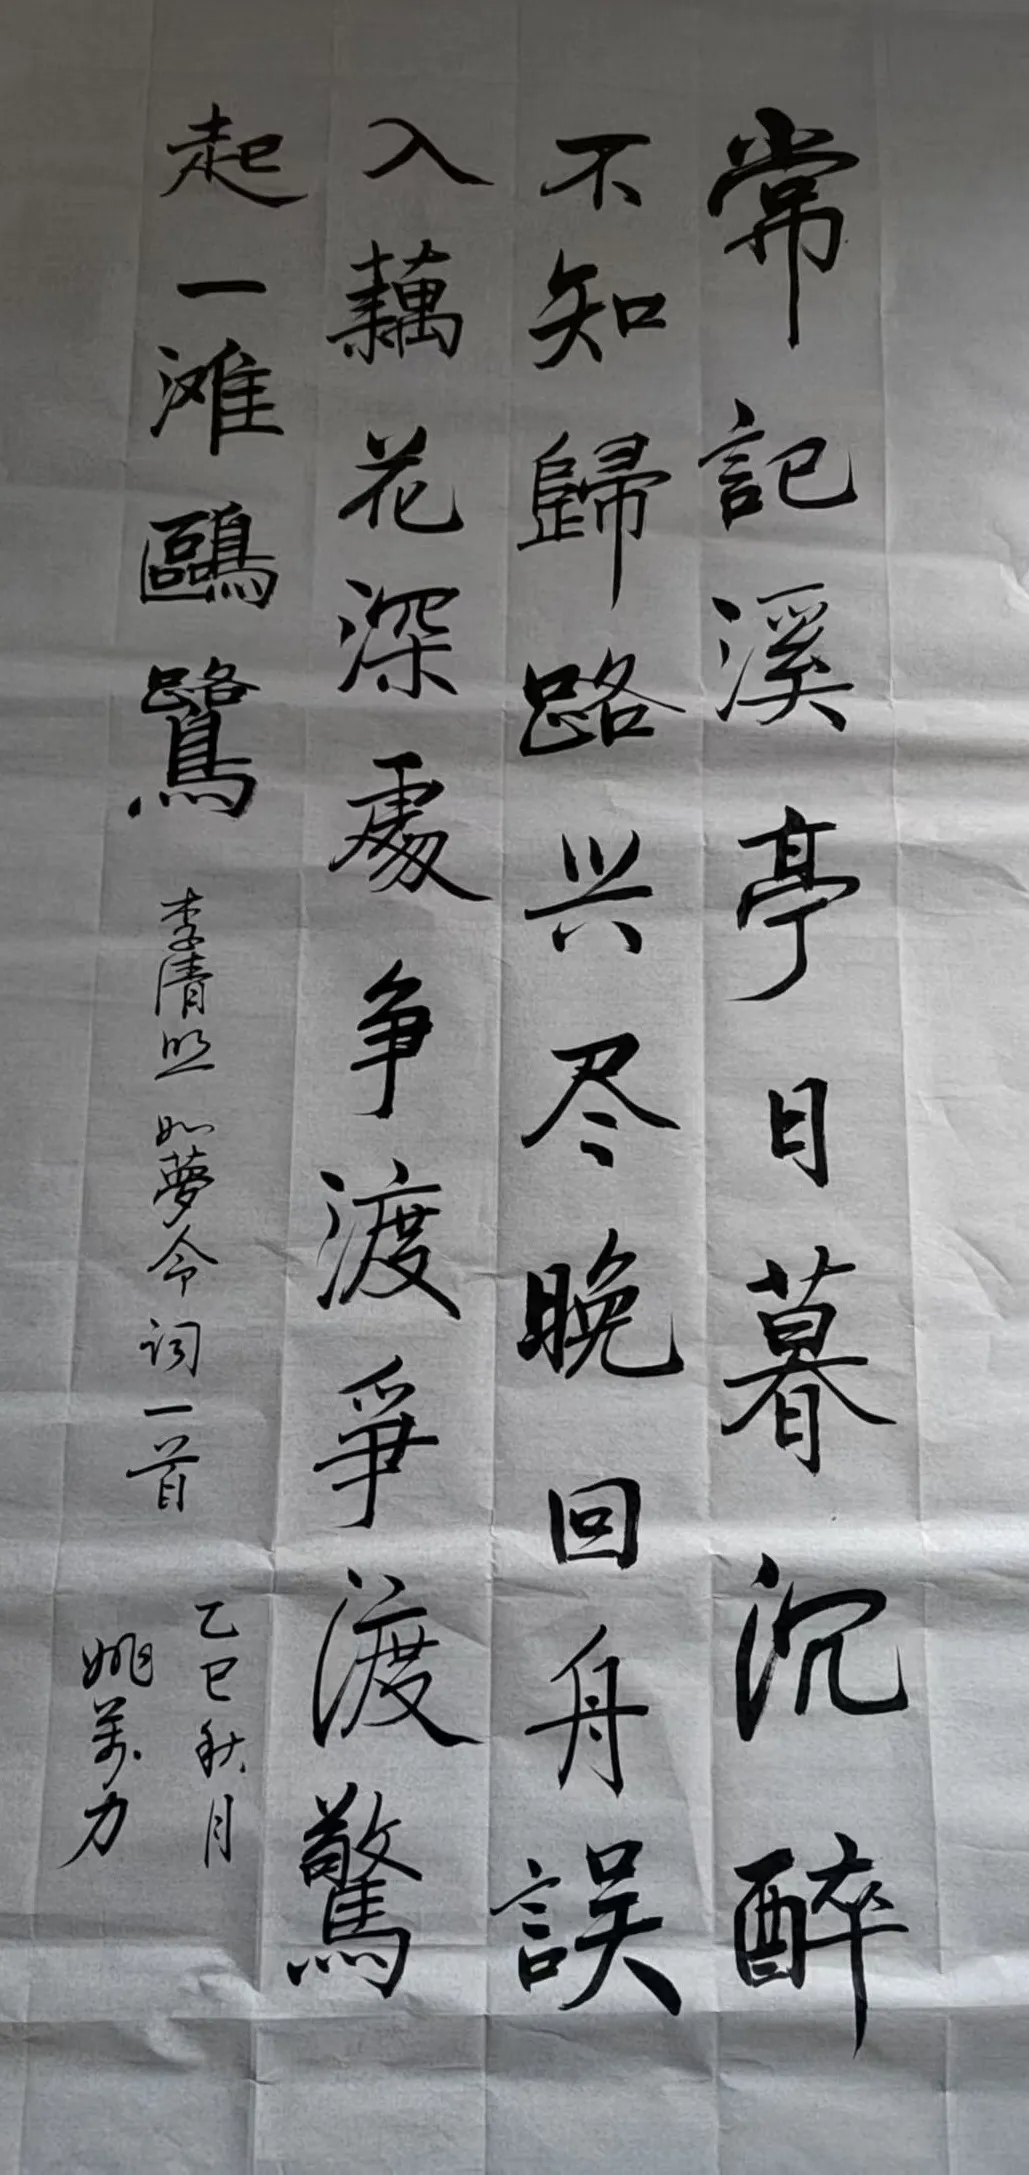 常記溪亭日暮沉醉
不知歸路兴尽晚回舟誤
入藕花深處争渡爭渡驚
起一滩鷗鷺
李清照如夢令词一首
乙巳秋月
姚万力